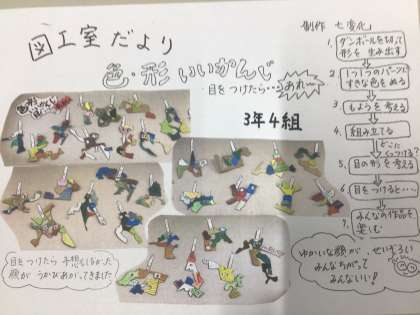 図工室だより
色・形いいかんじ
目をつけたら・・・あれ〜
3年4組
制作 七変化
1. ダンボールを切って
形を生み出す
2. 1つ1つのパーツに
すきな色をぬる
3. もようを考える
4. 組み立てる
どこに
くっつける?
5. 目の形を考える
6. 目をつけると…
7. みんなの作品を
楽しむ
目をつけたら 予想もしなかった
顔が うかびあがってきました
ゆかいな顔が せいぞろい
みんなちがって
みんないい!